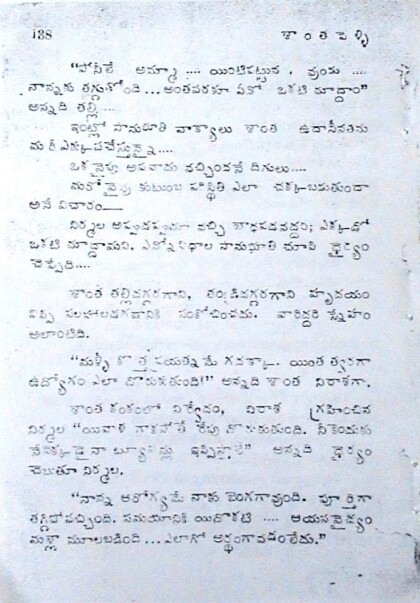 138 శాంత పెళ్ళి
"పోనీలే అమ్మా .... యింటిపట్టున . వుండు ....
నాన్నకు తగ్గుతోంది ... అంతవరకూ ఏదో ఒకటి చూద్దాం"
అన్నది తల్లి....
ఇంట్లో సానుభూతి వాక్యాలు శాంత ఉదాసీనతను
మరీ ఎక్కువచేస్తున్నై....
ఒక వైపు అపవాదు వచ్చిందనే దిగులు....
మరో వైపు కుటుంబ పరిస్థితి ఎలా చక్కబడుతుందా
అనే విచారం—
నిర్మల అప్పుడప్పుడూ వచ్చి బాధపడవద్దని; ఎక్కడో
ఒకటి చూద్దామని, ఎన్నో విధాల సానుభూతి చూపి ధైర్యం
చెప్పేది....
శాంత తల్లిదగ్గరగాని, తండ్రిదగ్గరగాని హృదయం
విప్పి మాట్లాడటానికి సంకోచించదు. వారిద్దరి స్నేహం
అలాంటిది.
"మళ్ళీ కొత్త ప్రయత్నమే గదక్కా. యింత త్వరగా
ఉద్యోగం ఎలా దొరుకుతుంది!" అన్నది శాంత నిరాశగా.
శాంత కంఠంలో నిర్వేదం, నిరాశ గ్రహించిన
నిర్మల "యివాళ గాకపోతే రేపు దొరుకుతుంది. నీకెందుకు
నేనెక్కడైనా ట్యూషన్లు ఇప్పిస్తాలే" అన్నది ధైర్యం
చెబుతూ నిర్మల.
"నాన్న ఆరోగ్యమే నాకు బెంగగావుంది. పూర్తిగా
తగ్గిపోవచ్చింది. సమయానికి యిదొకటి .... ఆయనవైద్యం
మళ్లా మూలబడింది ... ఎలాగో అర్థంగావడంలేదు."